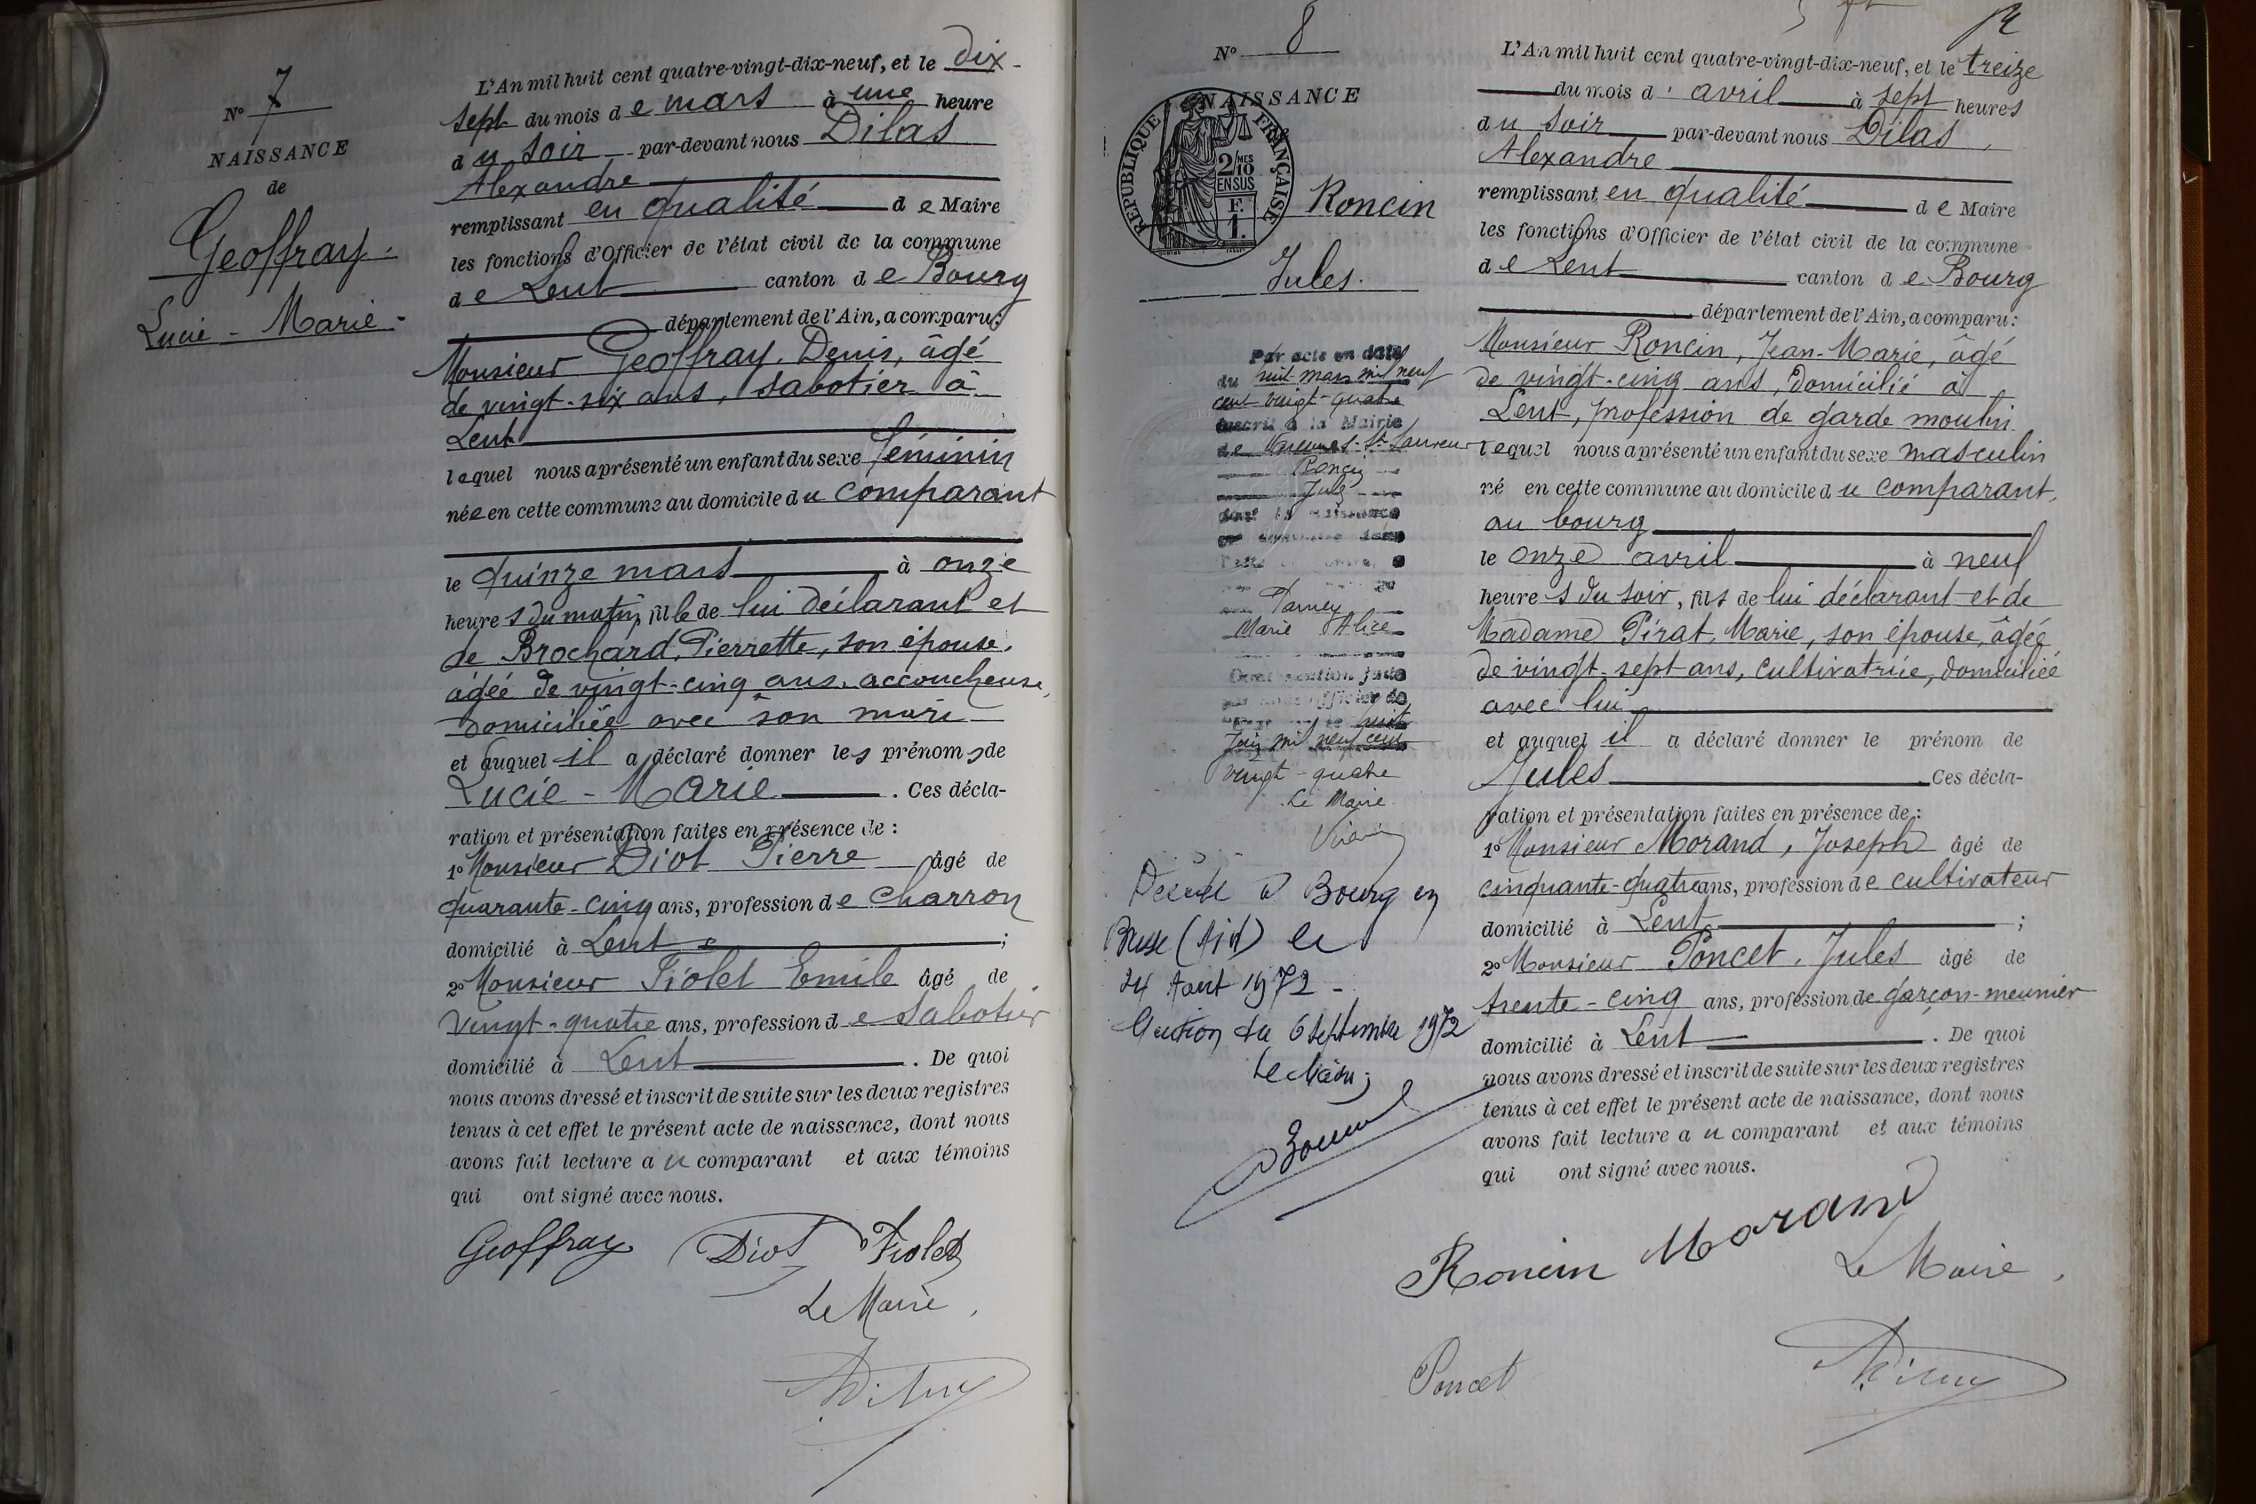 N° 7
NAISSANCE
de
Geoffray
Lucie - Marie
L'An mil huit cent quatre-vingt-dix-neuf, et le dix-
sept du mois de mars à une heure
du soir par-devant nous Dilas
Alexandre
remplissant en qualité de Maire
les fonctions d'Officier de l'état civil de la commune
de Lent canton de Bourg
département de l'Ain, a comparu:
Monsieur Geoffray, Denis, âgé
de vingt-six ans, sabotier à
Lent
lequel nous a présenté un enfant du sexe féminin
née en cette commune au domicile du comparant
le quinze mars à onze
heures du matin, fille de lui déclarant et
de Brochard, Pierrette, son épouse,
âgée de vingt-cinq ans, accoucheuse,
domiciliée avec son mari
et auquel il a déclaré donner les prénoms de
Lucie - Marie . Ces décla-
ration et présentation faites en présence de :
1° Monsieur Diot Pierre âgé de
quarante-cinq ans, profession de charron
domicilié à Lent ;
2° Monsieur Fiolet Emile âgé de
vingt-quatre ans, profession de sabotier
domicilié à Lent . De quoi
nous avons dressé et inscrit de suite sur les deux registres
tenus à cet effet le présent acte de naissance, dont nous
avons fait lecture au comparant et aux témoins
qui ont signé avec nous.
Geoffray Diot Fiolet
Le Maire,
N° 8
NAISSANCE
RÉPUBLIQUE FRANÇAISE
2/10 MES
EN SUS
F.
1.
Roncin
Jules.
Par acte en date
du huit mars mil neuf
cent vingt-quatre
inscrit à la Mairie
de Varennes-St-Sauveur
Roncin
Jules
dont la naissance
Marie Alice
huit
Juin mil neuf cent
vingt-quatre
Le Maire
Décédé à Bourg en
Bresse (Ain) le
24 Août 1972 -
Mention du 6 septembre 1972
Le Maire,
L'An mil huit cent quatre-vingt-dix-neuf, et le treize
du mois d'avril à sept heures
du soir par-devant nous Dilas,
Alexandre
remplissant en qualité de Maire
les fonctions d'Officier de l'état civil de la commune
de Lent canton de Bourg
département de l'Ain, a comparu:
Monsieur Roncin, Jean-Marie, âgé
de vingt-cinq ans, domicilié à
Lent, profession de garde moulin
lequel nous a présenté un enfant du sexe masculin
né en cette commune au domicile du comparant,
au bourg
le onze avril à neuf
heures du soir, fils de lui déclarant et de
Madame Pirat, Marie, son épouse, âgée
de vingt-sept ans, cultivatrice, domiciliée
avec lui
et auquel il a déclaré donner le prénom de
Jules . Ces décla-
ration et présentation faites en présence de :
1° Monsieur Morand, Joseph âgé de
cinquante-quatre ans, profession de cultivateur
domicilié à Lent ;
2° Monsieur Poncet, Jules âgé de
trente-cinq ans, profession de garçon-meunier
domicilié à Lent . De quoi
nous avons dressé et inscrit de suite sur les deux registres
tenus à cet effet le présent acte de naissance, dont nous
avons fait lecture au comparant et aux témoins
qui ont signé avec nous.
Roncin Morand
Le Maire,
Poncet